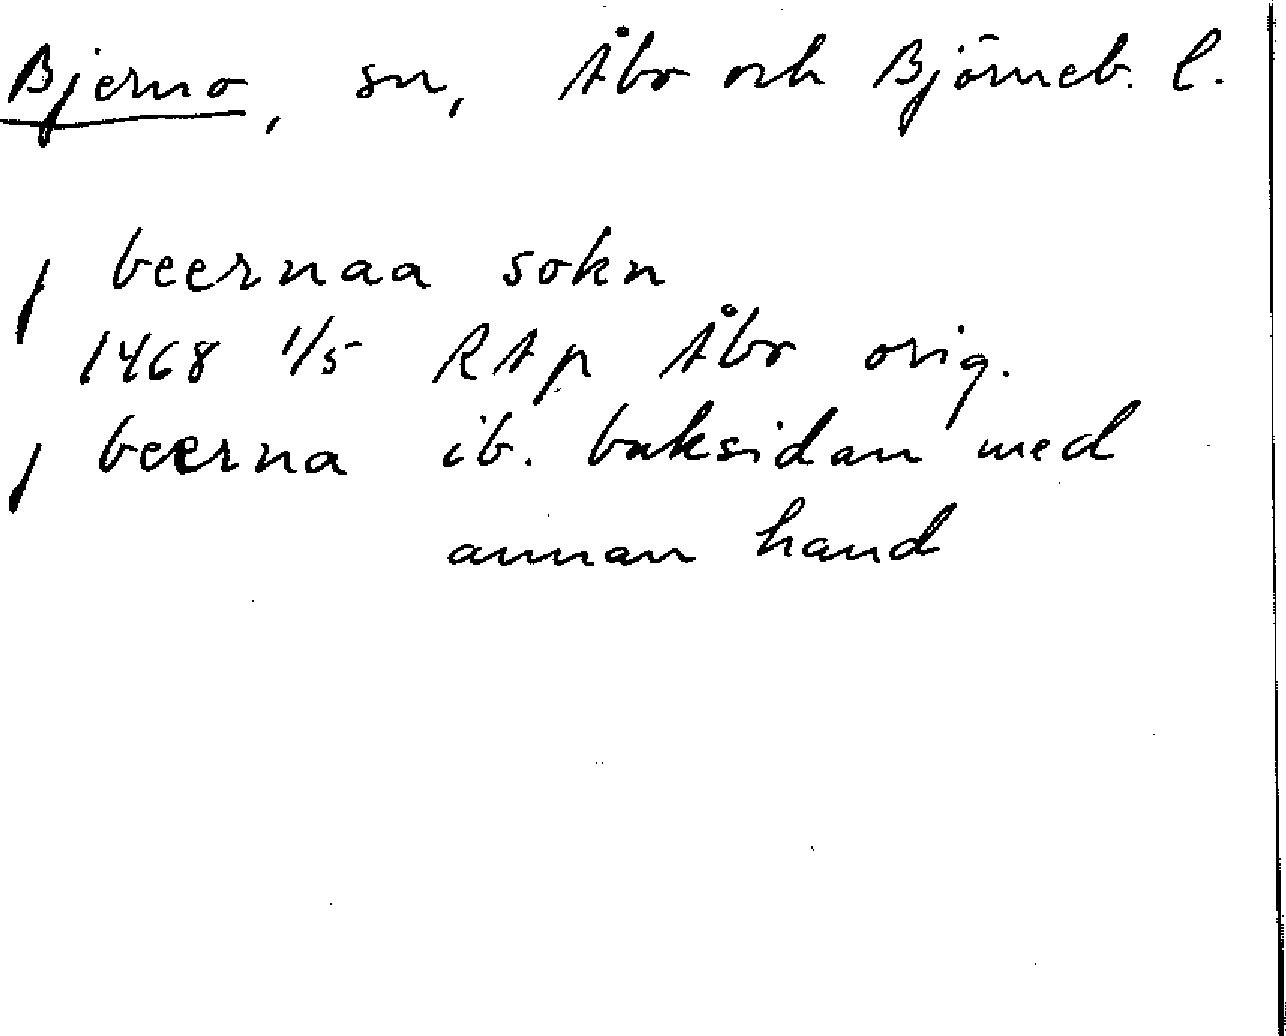 Bjerno, sn, Åbo och Björneb. l.
j beernaa sokn
1468 1/5 RAp Åbo orig.
j beerna ib. baksidan med
annan hand